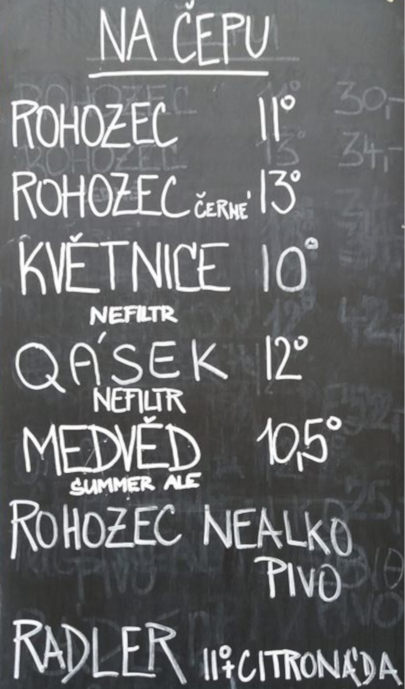 NA ČEPU
ROHOZEC 11°
ROHOZEC ČERNÉ 13°
KVĚTNICE 10°
NEFILTR
QÁSEK 12°
NEFILTR
MEDVĚD 10,5°
SUMMER ALE
ROHOZEC NEALKO
PIVO
RADLER 11°+CITRONÁDA
30,-
34,-